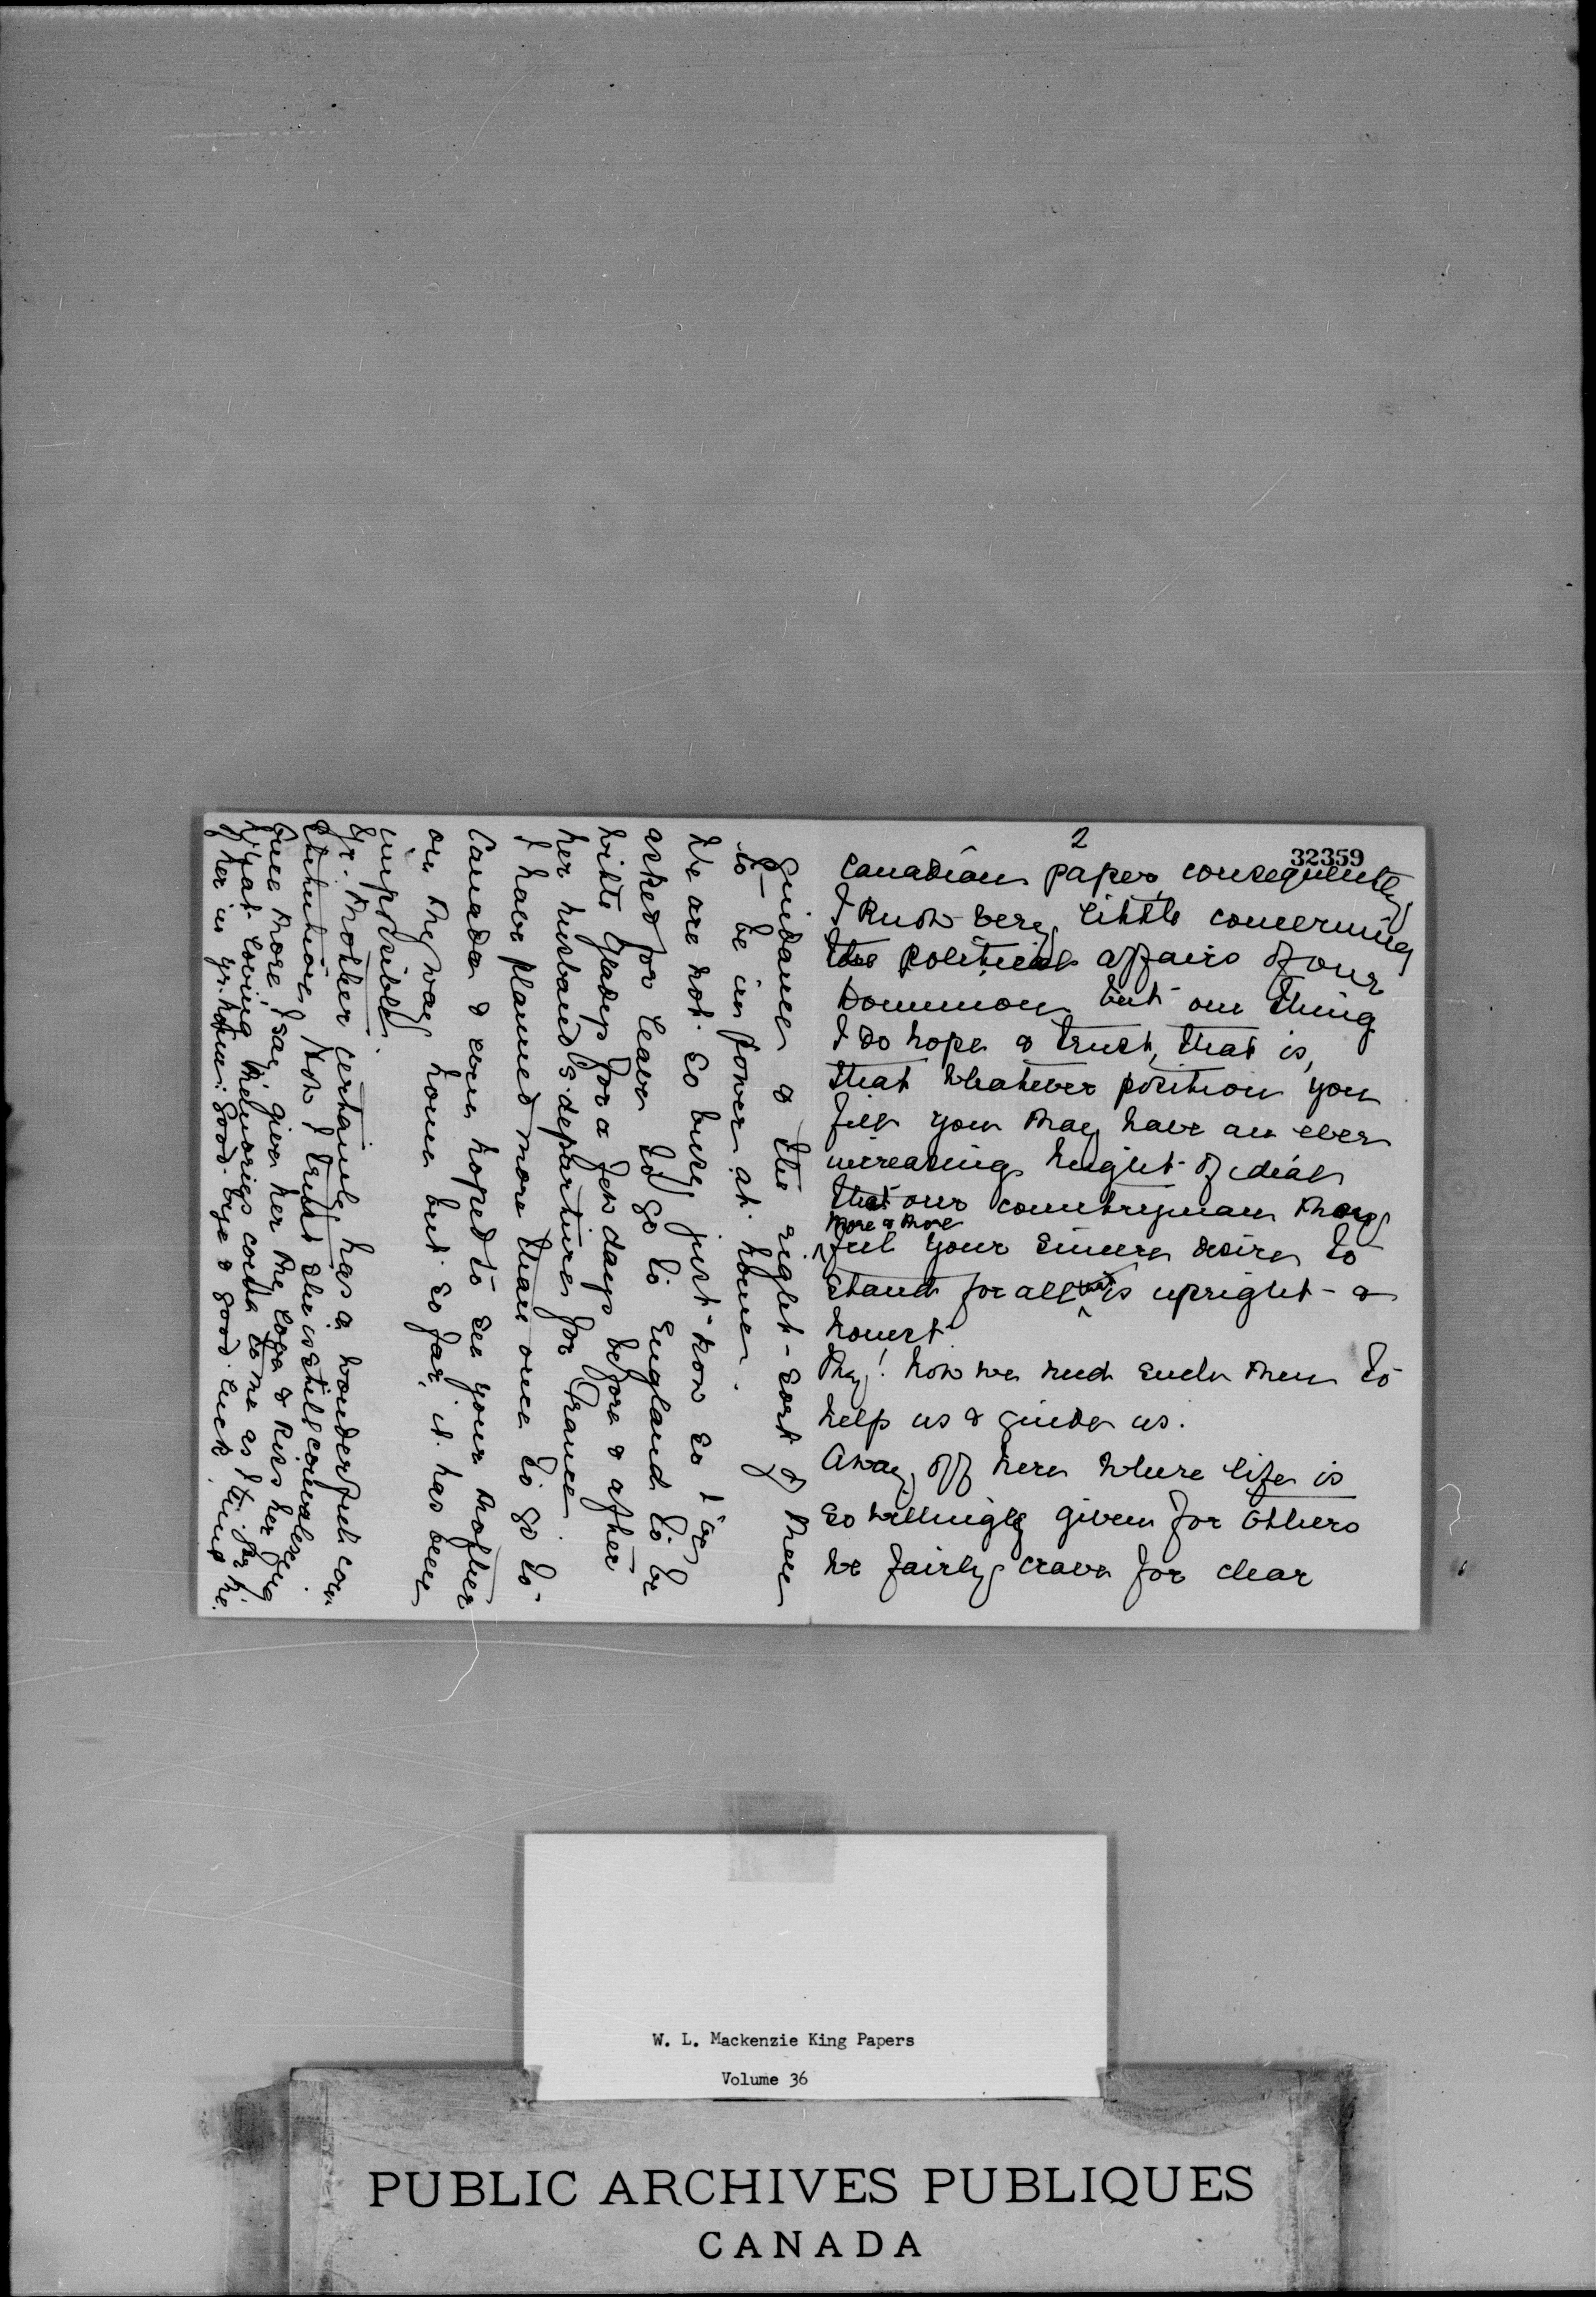 2
32359
Canadian paper, consequently
I know very little concerning
the political affairs of our
Dominion but one thing
I do hope & trust, that is,
that whatever position you
fill you may have an ever
increasing height of ideals
that our countryman may
more & more
feel your sincere desire to
stand for all that is upright - &
honest
My! how we need such men to
help us & guide us.
Away off here where life is
so willingly given for others
we fairly crave for clear
guidance & the right - sort of men
to be in power at home.
We are not so busy just now so I've
asked for leave to go to England to be
with Gladys for a few days before & after
her husband's departure for France.
I have planned more than once to go to
Canada & even hoped to see your mother
on my way home but so far, it has been
impossible.
Yr. Mother certainly has a wonderful con-
stitution. Now I trust she is still convalescing.
Once more I say give her my love & kiss her for me.
What loving memories come to me as I think
of her in yr. home. Good-bye & good luck.
W. L. Mackenzie King Papers
Volume 36
PUBLIC ARCHIVES PUBLIQUES
CANADA